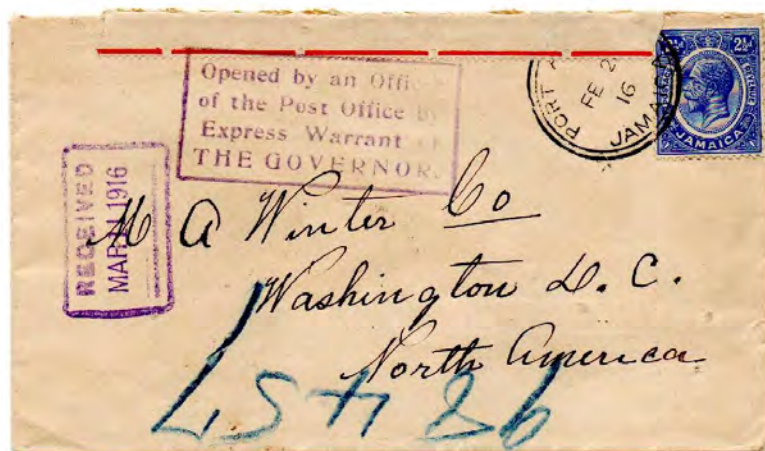 Opened by an
of the Post Office
Express Warrant
THE GOVERNOR.
PORT
FE 2
16
JAMAICA
2½
REVENUE
JAMAICA
RECEIVED
MAR 1916
M A Winter Co
Washington D. C.
North America